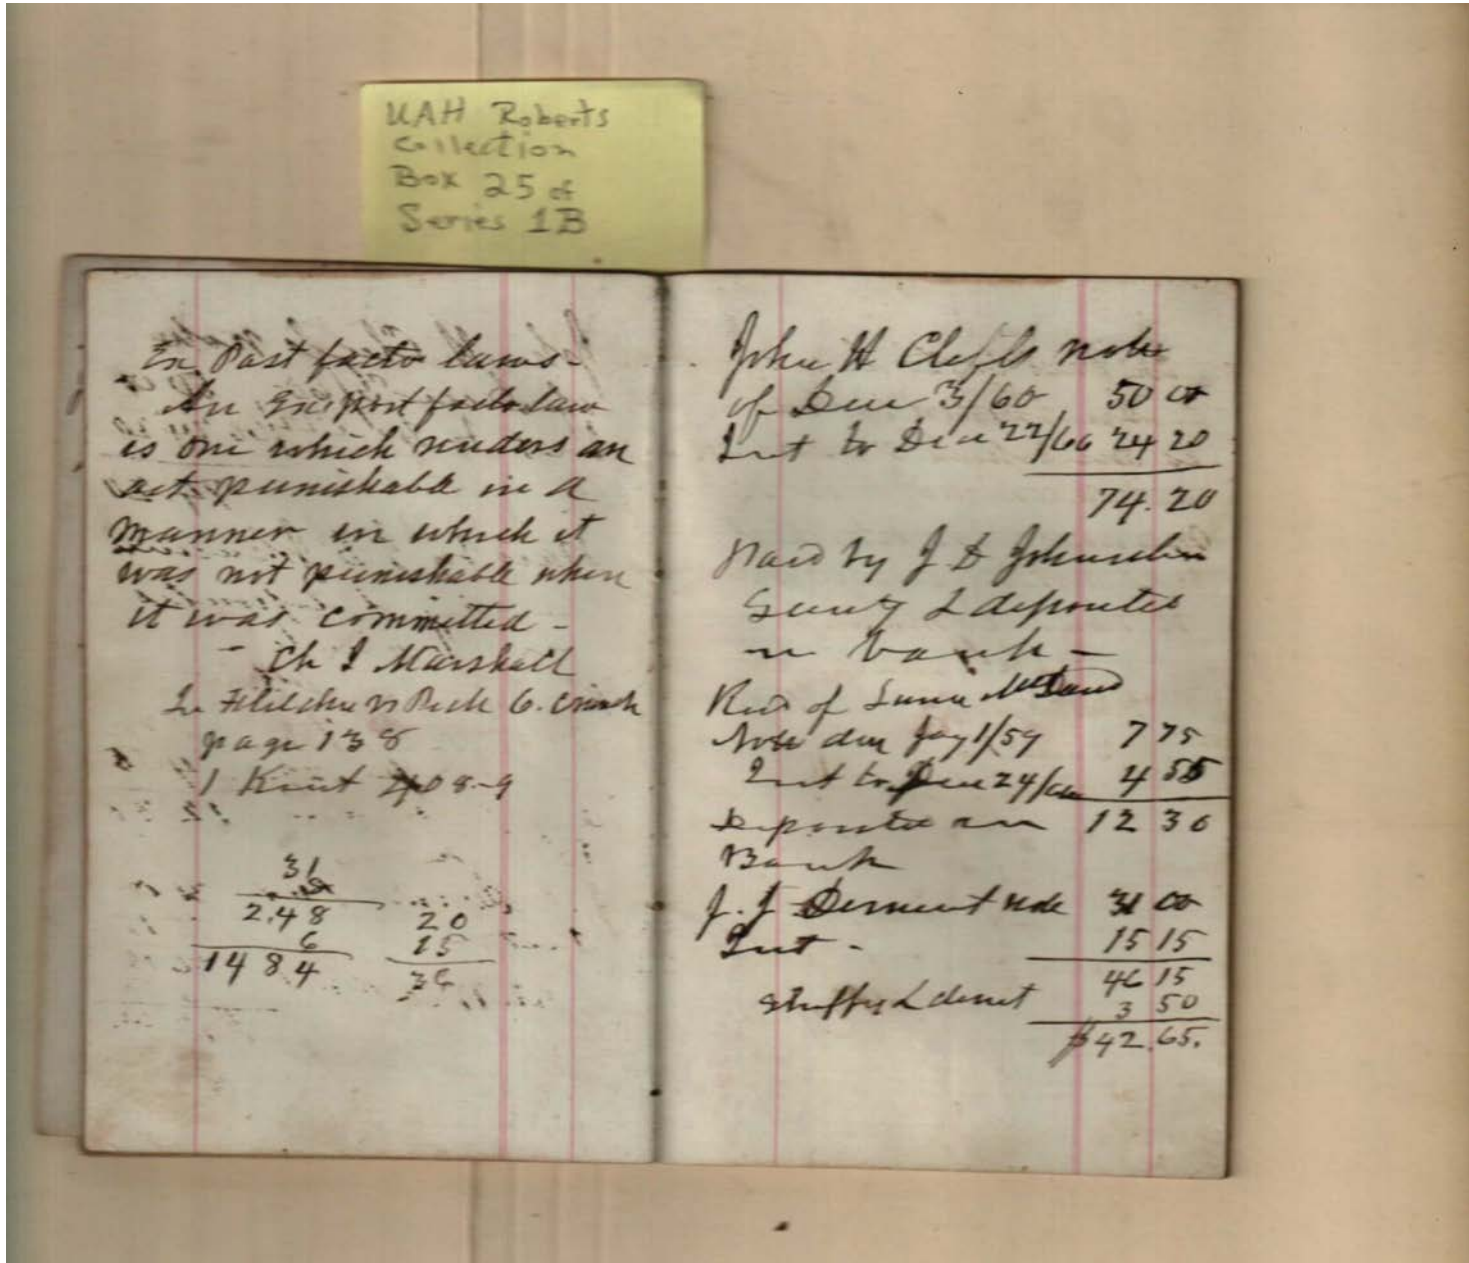 UAH Roberts
Collection
Box 25 of
Series 1B
Ex Post facto laws -
An Ex post facto law
is one which renders an
act punishable in a
manner in which it
was not punishable when
it was committed -
Ch J Marshall
In Fletcher vs Peck 6. Cranch
page 138
1 Kent 408-9
31
2.48 20
6 15
1484
John H note
of Dec 3/60 50 00
Int to Dec 22/66 24 20
74.20
Paid by J D
& deposited
in bank -
Recd of
Note due Jay 1/59 7 75
Int to Dec 24/66 4 55
Deposited in 12 30
Bank
J. J Dement note 31 00
Int - 15 15
46 15
3 50
$42.65.